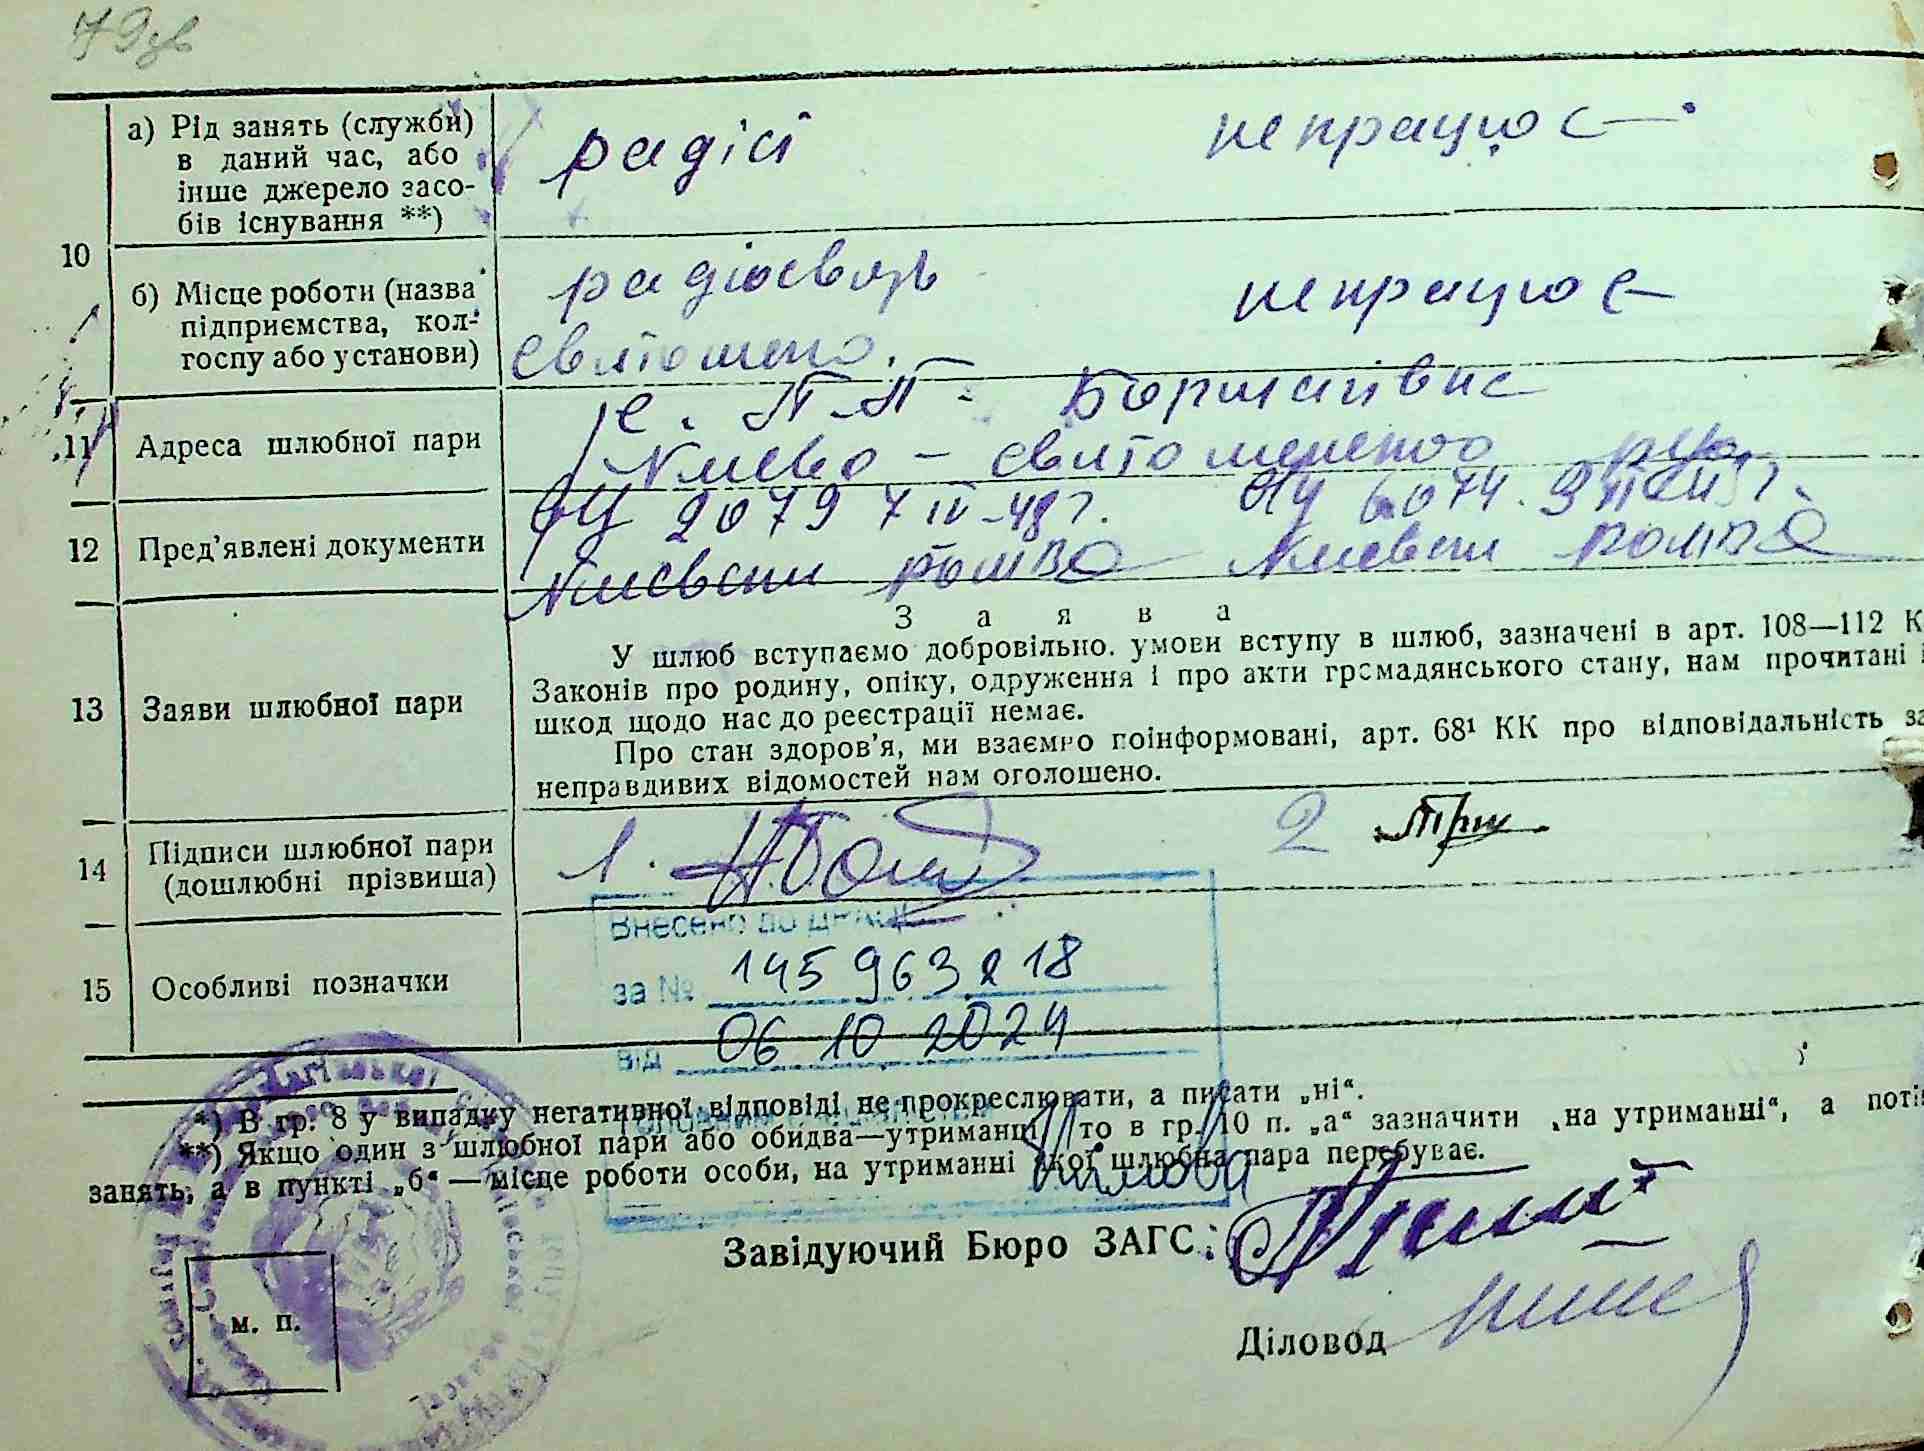 79зв
а) Рід занять (служби)
в даний час, або
інше джерело засо-
бів існування **)
радіст
непрацює
10
б) Місце роботи (назва
підприємства, кол-
госпу або установи)
радіосвязь
Святошено.
непрацює
11
Адреса шлюбної пари
с. П-П- Борщагівка
Києво – Святошенского р-ну
12
Пред’явлені документи
2079 7 IV-48 г. 6074
Киевским РОМВД Киевским РОМВД
13
Заяви шлюбної пари
Заява
У шлюб вступаємо добровільно. умови вступу в шлюб, зазначені в арт. 108—112 К
Законів про родину, опіку, одруження і про акти громадянського стану, нам прочитані і
шкод щодо нас до реєстрації немає.
Про стан здоров’я, ми взаємно поінформовані, арт. 68¹ КК про відповідальність за
неправдивих відомостей нам оголошено.
14
Підписи шлюбної пари
(дошлюбні прізвища)
1.
2
15
Особливі позначки
Внесено до ДРАЦС
за № 145 963 218
від 06 10 2024
*) В гр. 8 у випадку негативної відповіді не прокреслювати, а писати „ні“.
**) Якщо один з шлюбної пари або обидва—утриманці, то в гр. 10 п. „а“ зазначити „на утриманні“, а потім
занять, а в пункті „б“ — місце роботи особи, на утриманні якої шлюбна пара перебуває.
Завідуючий Бюро ЗАГС:
м. п.
Діловод